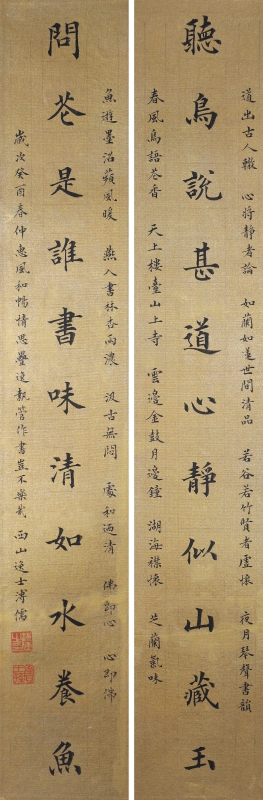 道出古人轍 心將靜者論 如蘭如蕙世間清品 若谷若竹賢者虛懷 夜月琴聲書韻
聽鳥說甚道心靜似山藏玉
春風鳥語花香 天上樓臺山上寺 雲邊金鼓月邊鐘 湖海襟懷 芝蘭氣味
魚遊墨沼蘋風暖 燕入書林杏雨濃 汲古無悶 處和迺清 佛即心 心即佛
問花是誰書味清如水養魚
歲次癸酉春仲惠風和暢情思疊逸執管作書豈不樂哉 西山逸士溥儒